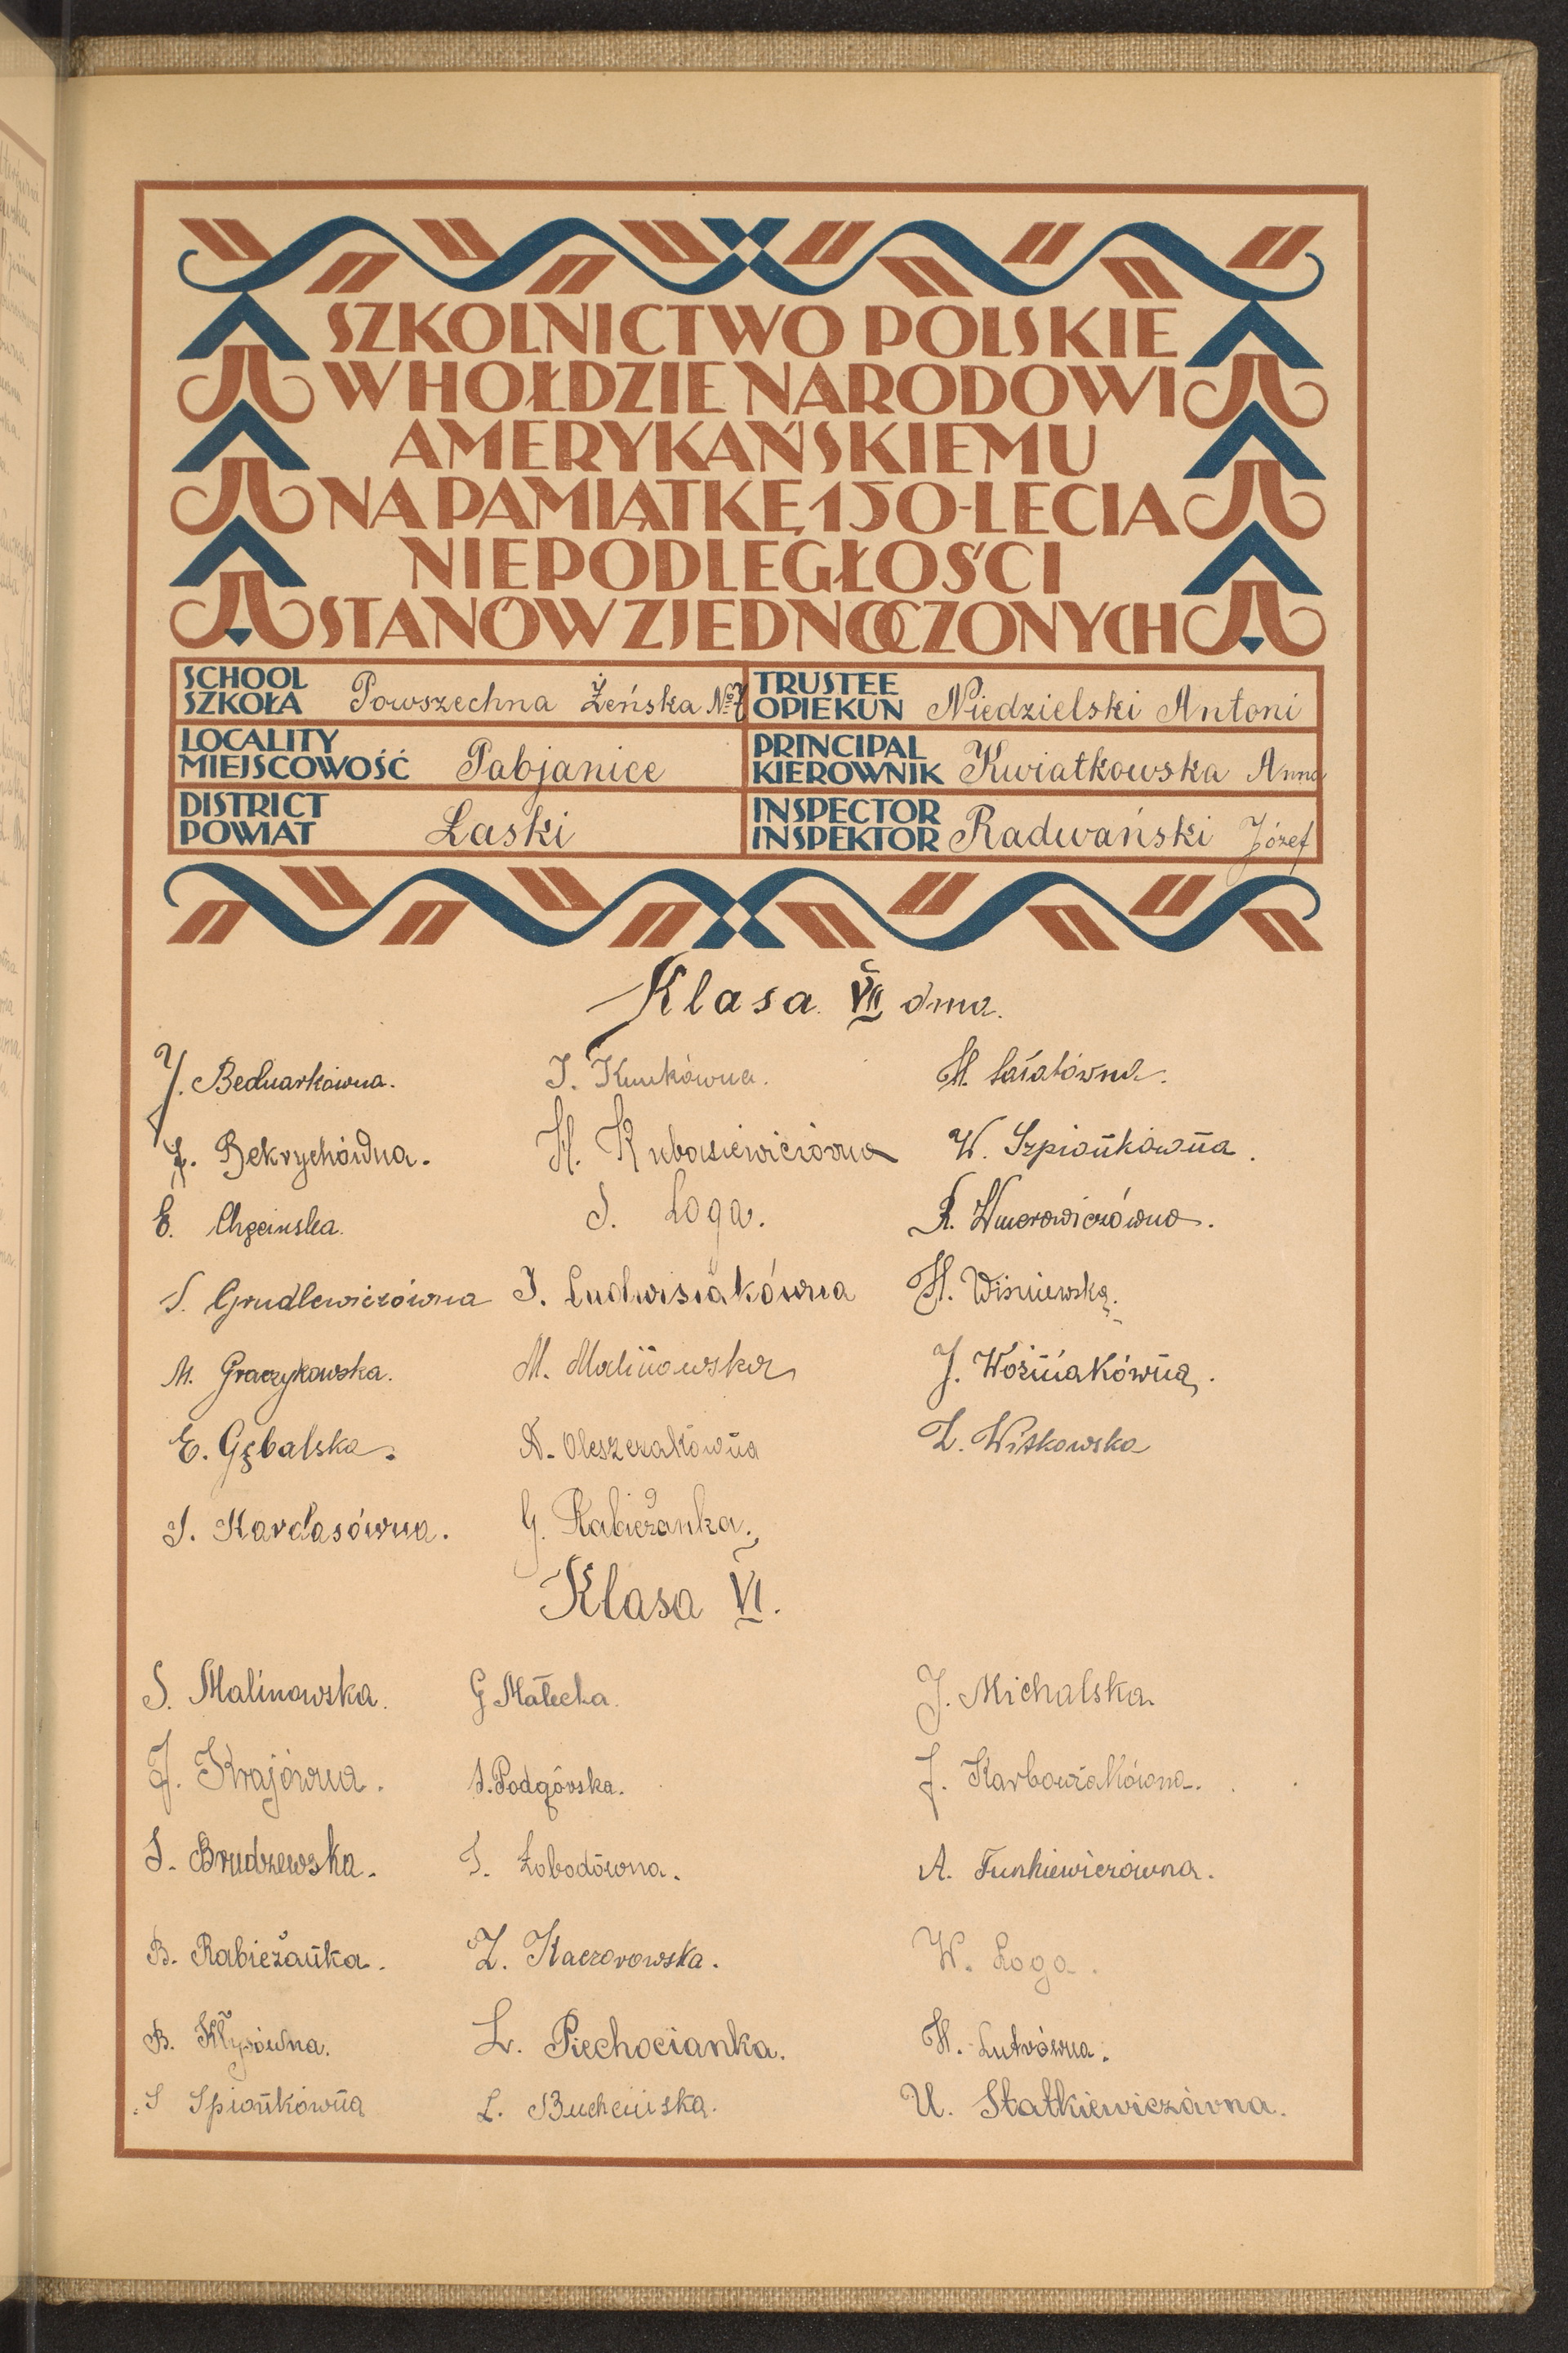 SZKOLNICTWO POLSKIE
W HOŁDZIE NARODOWI
AMERYKAŃSKIEMU
NA PAMIĄTKĘ 150-LECIA
NIEPODLEGŁOŚCI
STANÓW ZJEDNOCZONYCH
SCHOOL
SZKOŁA Powszechna Żeńska № 7
TRUSTEE
OPIEKUN Niedzielski Antoni
LOCALITY
MIEJSCOWOŚĆ Pabjanice
PRINCIPAL
KIEROWNIK Kwiatkowska Anna
DISTRICT
POWIAT Łaski
INSPECTOR
INSPEKTOR Radwański Józef
Klasa VII dma.
J. Bednarkówna. I. Kunkówna. H. Sałatówna.
J. Bekrychówna. H. Kubasiewiczówna W. Szpionkówna.
E. Chęcinska. S. Loga. R. Wworowiczówna.
S. Grudlewiczówna I. Ludwisiakówna H. Wiśniewska.
M. Graczykowska. M. Malinowska J. Woźniakówna.
E. Gębalska. A. Oleszczakówna Z. Witkowska
S. Kardasówna. G. Rabieżanka.
Klasa VI.
S. Malinowska. G Małecka. J. Michalska
J. Krajówna. S. Podgórska. J. Karbowiakówna.
S. Brudzewska. I. Łobodówna. A. Funkiewiczówna.
B. Rabieżanka. Z. Kaczorowska. W. Loga.
B. Kłysówna. L. Piechocianka. H. Lutrówna.
S Spionkówna Z. Bucheńska. U. Statkiewiczówna.